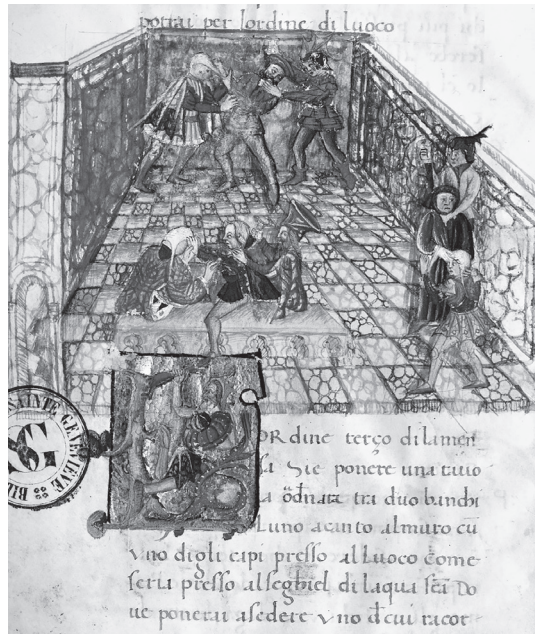 pottai per lordine di luoco
SAINTE GENEVIEVE
SG
ORdine terço di lamen
Sie ponere una tauo
la tra duo banchi
Luno acanto almuro cu
vno digli capi presso al luoco come
seria presso al seghiel di laqua Do
ue ponerai asedere vno cui racor